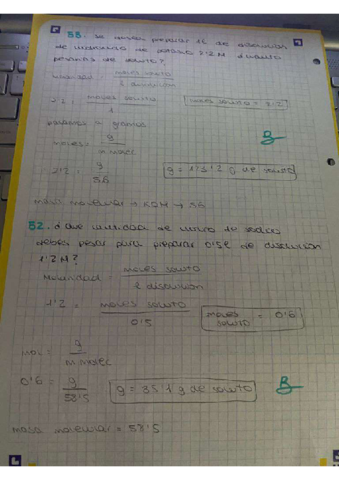 53. Se desea preparar 1L de disolución
de hidróxido de potasio 2'2 M ¿cuánto
pesarás de soluto?
molaridad = moles soluto
l disolución
= moles soluto
1
moles soluto = 2'2
pasamos a gramos
moles = g
m molec
B
2'2 = g
56
g = 123'2 g de soluto
masa molecular → KOH → 56
52. ¿Que cantidad de cloruro de sodio
debes pesar para preparar 0'5l de disolución
1'2 M?
Molaridad = moles soluto
l disolución
1'2 = moles soluto
0'5
moles
soluto = 0'6
mol = g
m molec
0'6 = g
58'5
g = 35'1 g de soluto
B
masa molecular = 58'5